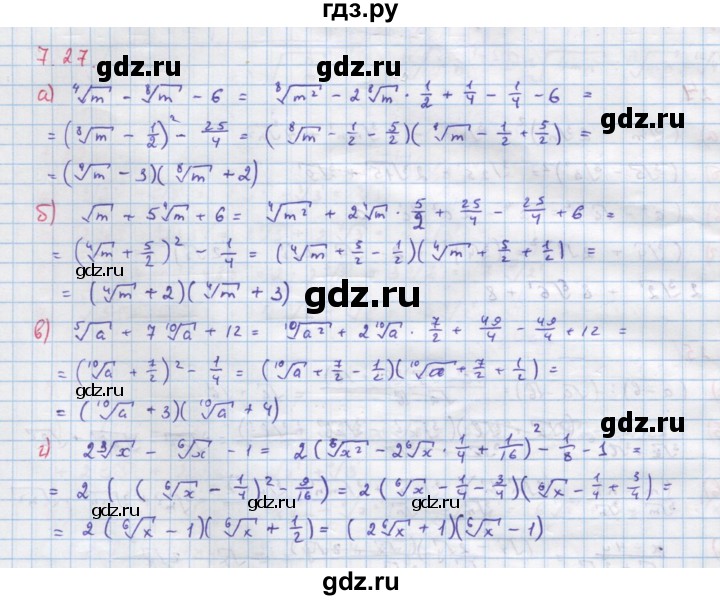 гдз.ру
7.27.
gdz.ru
gdz.ru
а) ⁴√m − ⁸√m − 6 = ⁸√m² − 2 ⁸√m · 1/2 + 1/4 − 1/4 − 6 =
= (⁸√m − 1/2)² − 25/4 = (⁸√m − 1/2 − 5/2)(⁸√m − 1/2 + 5/2) =
gdz.ru
gdz.ru
= (⁸√m − 3)(⁸√m + 2)
б) √m + 5 ⁴√m + 6 = ⁴√m² + 2 ⁴√m · 5/2 + 25/4 − 25/4 + 6 =
= (⁴√m + 5/2)² − 1/4 = (⁴√m + 5/2 − 1/2)(⁴√m + 5/2 + 1/2) =
gdz.ru
gdz.ru
= (⁴√m + 2)(⁴√m + 3)
gdz.ru
в) ⁵√a + 7 ¹⁰√a + 12 = ¹⁰√a² + 2 ¹⁰√a · 7/2 + 49/4 − 49/4 + 12 =
gdz.ru
= (¹⁰√a + 7/2)² − 1/4 = (¹⁰√a + 7/2 − 1/2)(¹⁰√a + 7/2 + 1/2) =
gdz.ru
gdz.ru
= (¹⁰√a + 3)(¹⁰√a + 4)
gdz.ru
г) 2 ³√x − ⁶√x − 1 = 2 (⁶√x² − 2 ⁶√x · 1/4 + 1/16)² − 1/8 − 1 =
= 2 ((⁶√x − 1/4)² − 9/16) = 2 (⁶√x − 1/4 − 3/4)(⁶√x − 1/4 + 3/4) =
gdz.ru
gdz.ru
= 2 (⁶√x − 1)(⁶√x + 1/2) = (2 ⁶√x + 1)(⁶√x − 1)
gdz.ru